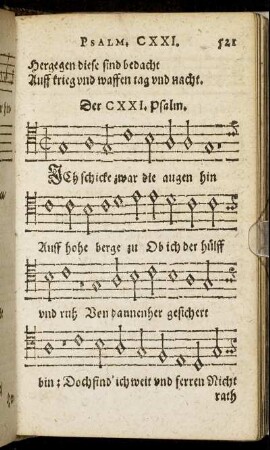 PSALM, CXXI. 521
Hergegen diese sind bedacht
Auff krieg vnd waffen tag vnd nacht.
Der CXXI. Psalm.
ICh schicke zwar die augen hin
Auff hohe berge zu Ob ich der hülff
vnd ruh Von dannenher gesichert
bin; Doch sind' ich weit vnd ferren Nicht
rath